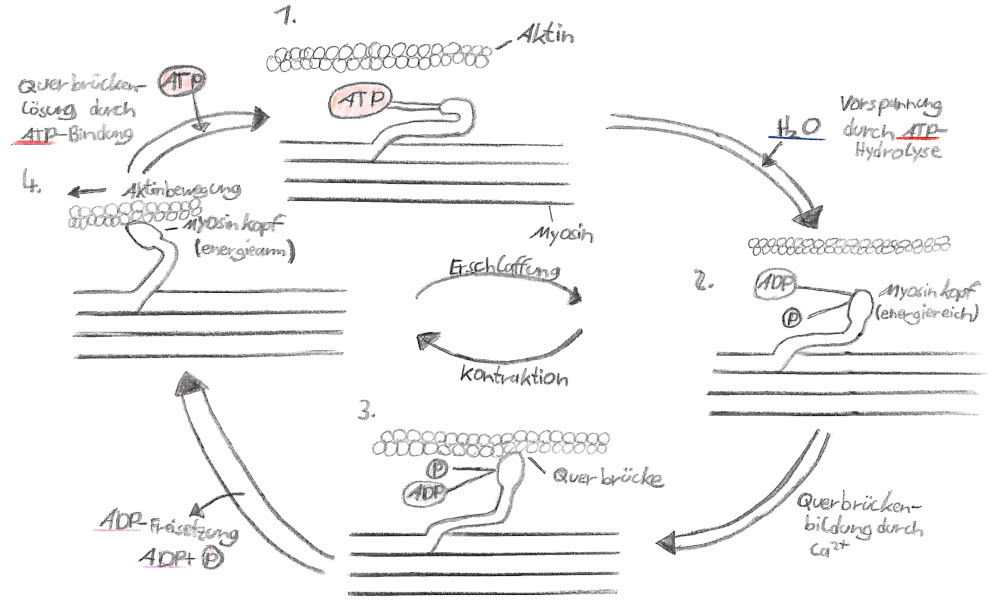 1.
Aktin
ATP
Myosin
H₂O
Vorspannung
durch ATP-
Hydrolyse
2.
ADP
P
Myosinkopf
(energiereich)
Querbrücken-
bildung durch
Ca²⁺
3.
P
ADP
Querbrücke
ADP-Freisetzung
ADP+ P
4.
Aktinbewegung
Myosinkopf
(energiearm)
Querbrücken-
Lösung durch
ATP-Bindung
ATP
Erschlaffung
Kontraktion